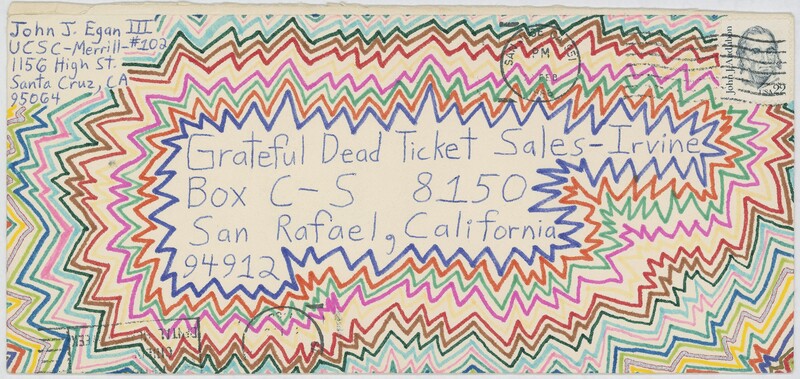 John J. Egan III
UCSC-Merrill-#102
1156 High St.
Santa Cruz, CA
95064
PM
FEB
John J. Audubon
USA 22
Grateful Dead Ticket Sales-Irvine
Box C-S 8150
San Rafael, California
94912